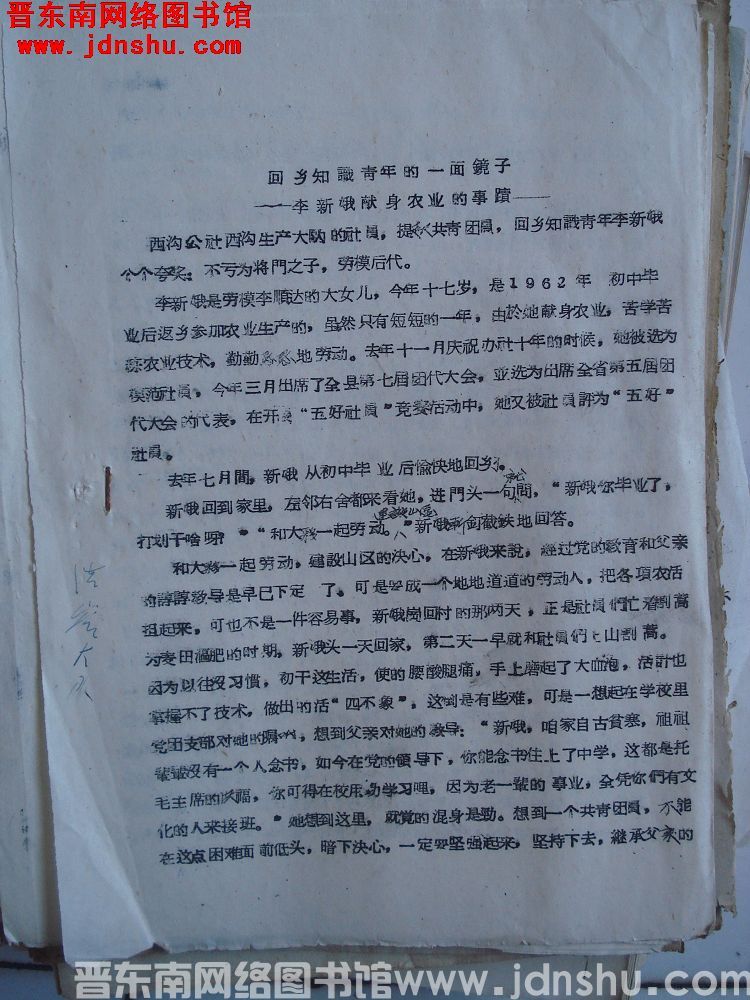 晋东南网络图书馆
www.jdnshu.com
回乡知識青年的一面鏡子
——李新娥献身农业的事蹟——
西沟公社西沟生产大队的社員，提起共青团員，回乡知識青年李新娥
个个夸奖：不亏为将門之子，劳模后代。
李新娥是劳模李順达的大女儿，今年十七岁，是1962年 初中毕
业后返乡参加农业生产的，虽然只有短短的一年，由於她献身农业，苦学苦
练农业技术，勤勤恳恳地劳动。去年十一月庆祝办社十年的时候，她被选为
模范社員，今年三月出席了全县第七届团代大会，並选为出席全省第五届团
代大会的代表，在开展“五好社員”竞赛活动中，她又被社員評为“五好”
社員。
去年七月間，新娥从初中毕业后愉快地回乡。
新娥回到家里，左邻右舍都来看她，进門头一句問，“新娥你毕业了，
打划干啥呀？”“和大家一起劳动。”新娥斩釘截鉄地回答。
建設山区
和大家一起劳动，建設山区的决心，在新娥来說，經过党的教育和父亲
的諄諄教导是早已下定 了。可是要成一个地地道道的劳动人，把各項农活
担起来，可也不是一件容易事，新娥崗回村的那两天，正是社員們忙着割蒿
为麦田漚肥的时期，新娥头一天回家，第二天一早就和社員們上山割蒿。
因为以往沒习慣，初干这生活，使的腰酸腿痛，手上磨起了大血泡，活計也
掌握不了技术，做出的活“四不象”，这倒是有些难，可是一想起在学校里
党团支部对她的嘱咐，想到父亲对她的教导：“新娥，咱家自古貧寒，祖祖
輩輩沒有一个人念书，如今在党的領导下，你能念书住上了中学，这都是托
毛主席的洪福，你可得在校用功学习哩，因为老一輩的事业，全凭你們有文
化的人来接班。”她想到这里，就覚的混身是勁。想到一个共青团員，不能
在这点困难面前低头，暗下决心，一定要坚强起来，坚持下去，継承父亲的
大队
晋东南网络图书馆www.jdnshu.com